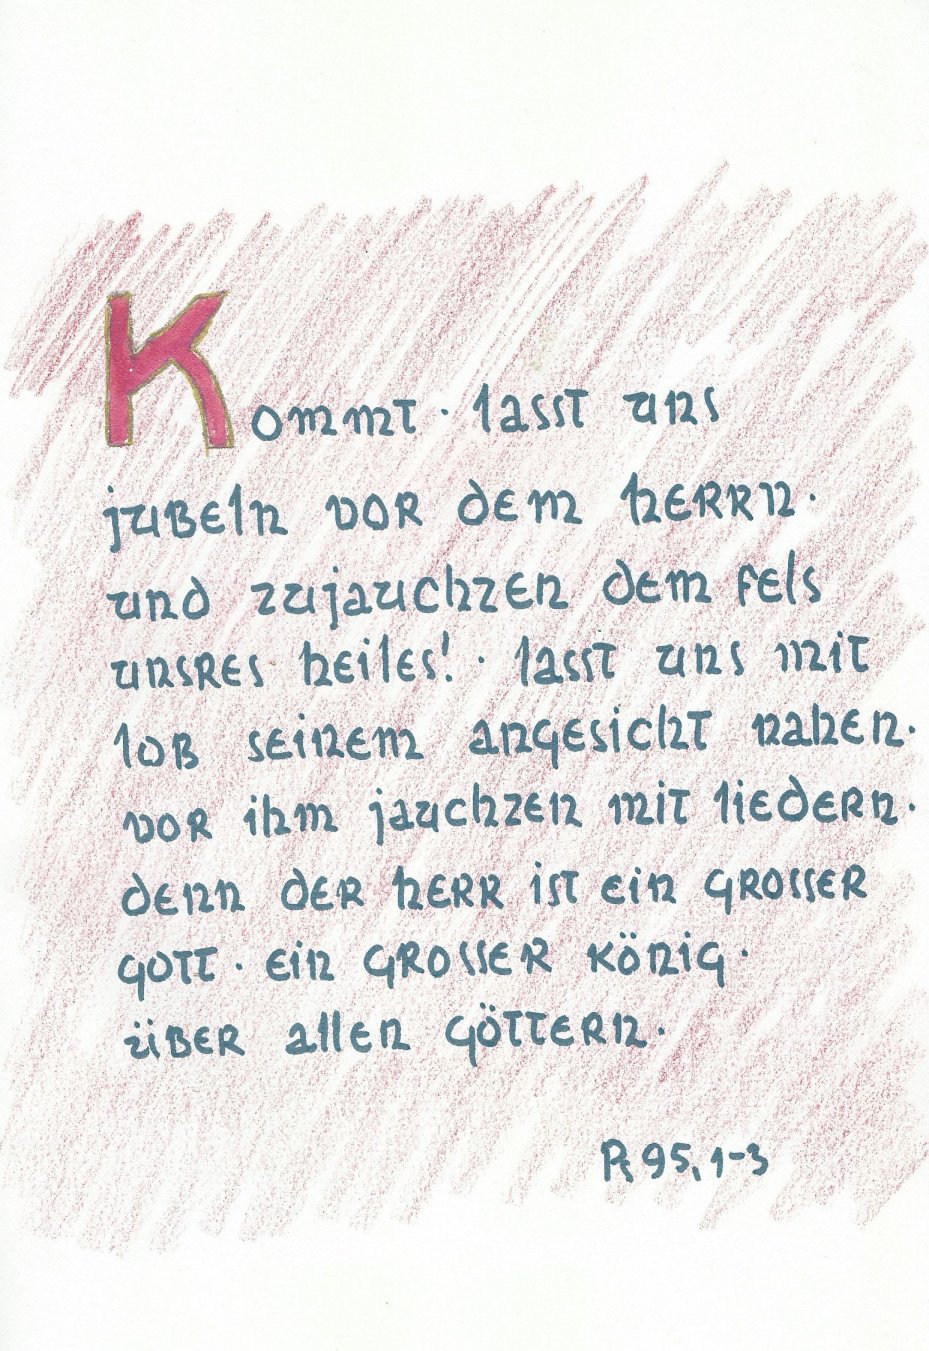 Kommt · lasst uns
jubeln vor dem herrn ·
und zujauchzen dem fels
unsres heiles! · lasst uns mit
lob seinem angesicht nahen ·
vor ihm jauchzen mit liedern ·
denn der herr ist ein grosser
gott · ein grosser könig ·
über allen göttern ·
Ps 95, 1-3